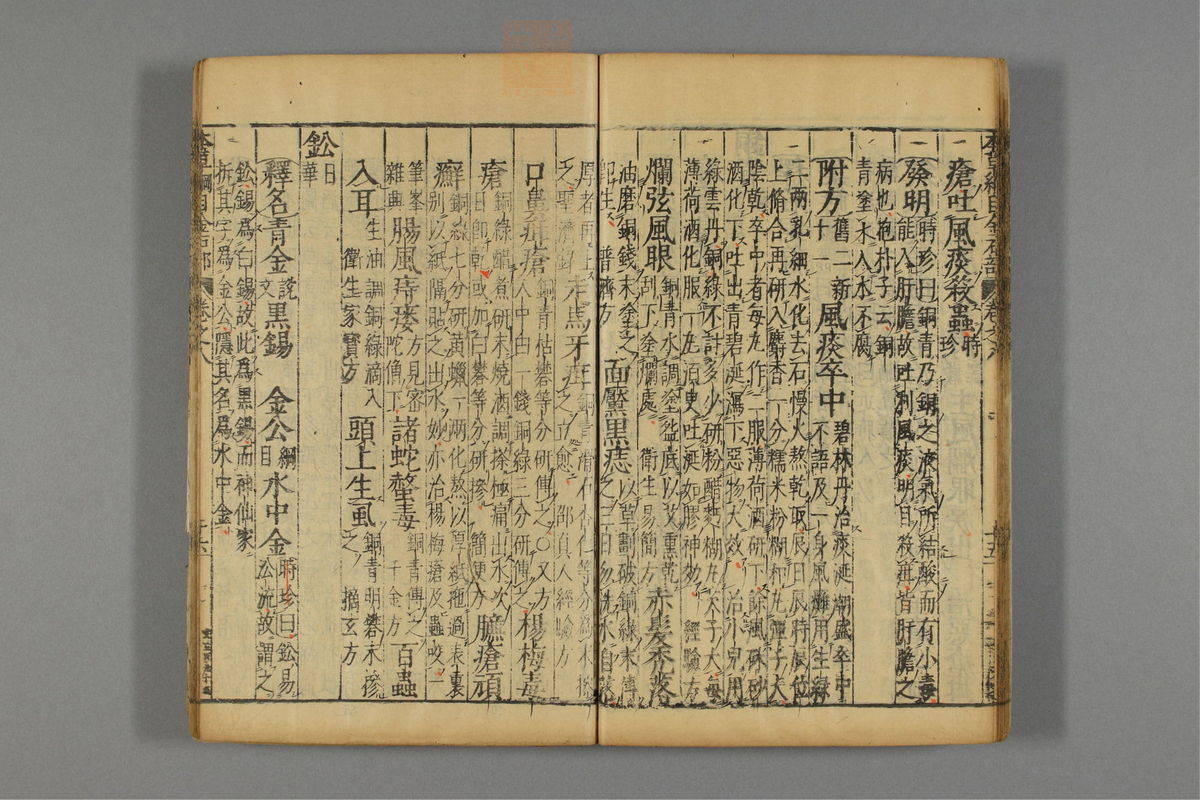 瘡吐風痰殺蟲時珍
發明時珍曰銅青乃銅之液氣所結酸而有小毒
能入肝膽故吐利風痰明目殺疳皆肝膽之
病也抱朴子云銅
青塗木入水不腐
附方舊二新十一風痰卒中碧林丹治痰涎潮盛卒中
不語及一身風癱用生綠
二兩乳細水化去石慢火熬乾取辰日辰時辰位
上脩合再研入麝香一分糯米粉糊和丸彈子大
陰乾卒中者每丸作二服薄荷酒研下餘風硃砂
酒化下吐出青碧涎瀉下惡物大效治小兒用
綠雲丹銅綠不計多少研粉醋麪糊丸芡子大每
薄荷酒化服一丸須臾吐涎如膠神効經驗方
爛弦風眼銅青水調塗盌底以艾熏乾
刮下塗爛處衛生易簡方赤髮禿落
油磨銅錢末塗之
即生普濟方面黶黑痣以草劃破銅綠末傅
之三日勿洗水自落
厚者再上
之聖濟錄走馬牙疳銅青滑石杏仁等分爲末擦
之立愈邵真人經驗方
口鼻疳瘡銅青枯礬等分研傅之○又方
人中白一錢銅綠三分研傅之楊梅毒
瘡銅綠醋煮研末燒酒調搽極痛出水次
日即乾或加白礬等分研摻簡便方臁瘡頑
癬銅綠七分研黃蠟一兩化熬以厚紙拖過表裏
別以紙隔貼之出水妙亦治楊梅瘡及蟲咬
筆峯
雜興腸風痔瘻方見密
陀僧下諸蛇螫毒銅青傅之
千金方百蟲
入耳生油調銅綠滴入
衛生家寶方頭上生虱銅青明礬末摻
之摘玄方
鈆日華
釋名青金說文黑錫金公綱目水中金時珍曰鈆易
㳂流故謂之
鈆錫爲白錫故此爲黑錫而神仙家
拆其字爲金公隱其名爲水中金